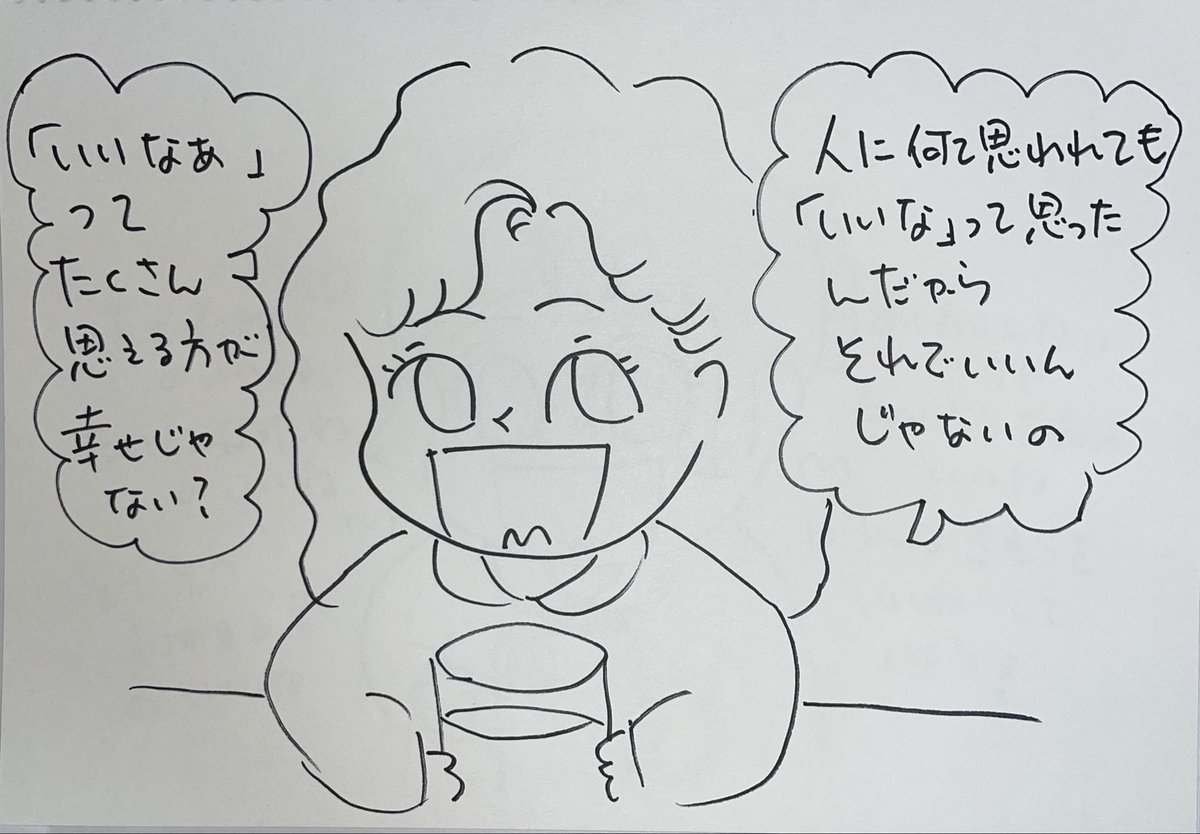 人に何て思われても
「いいな」って思った
んだから
それでいいん
じゃないの
「いいなぁ」
って
たくさん
思える方が
幸せじゃ
ない?